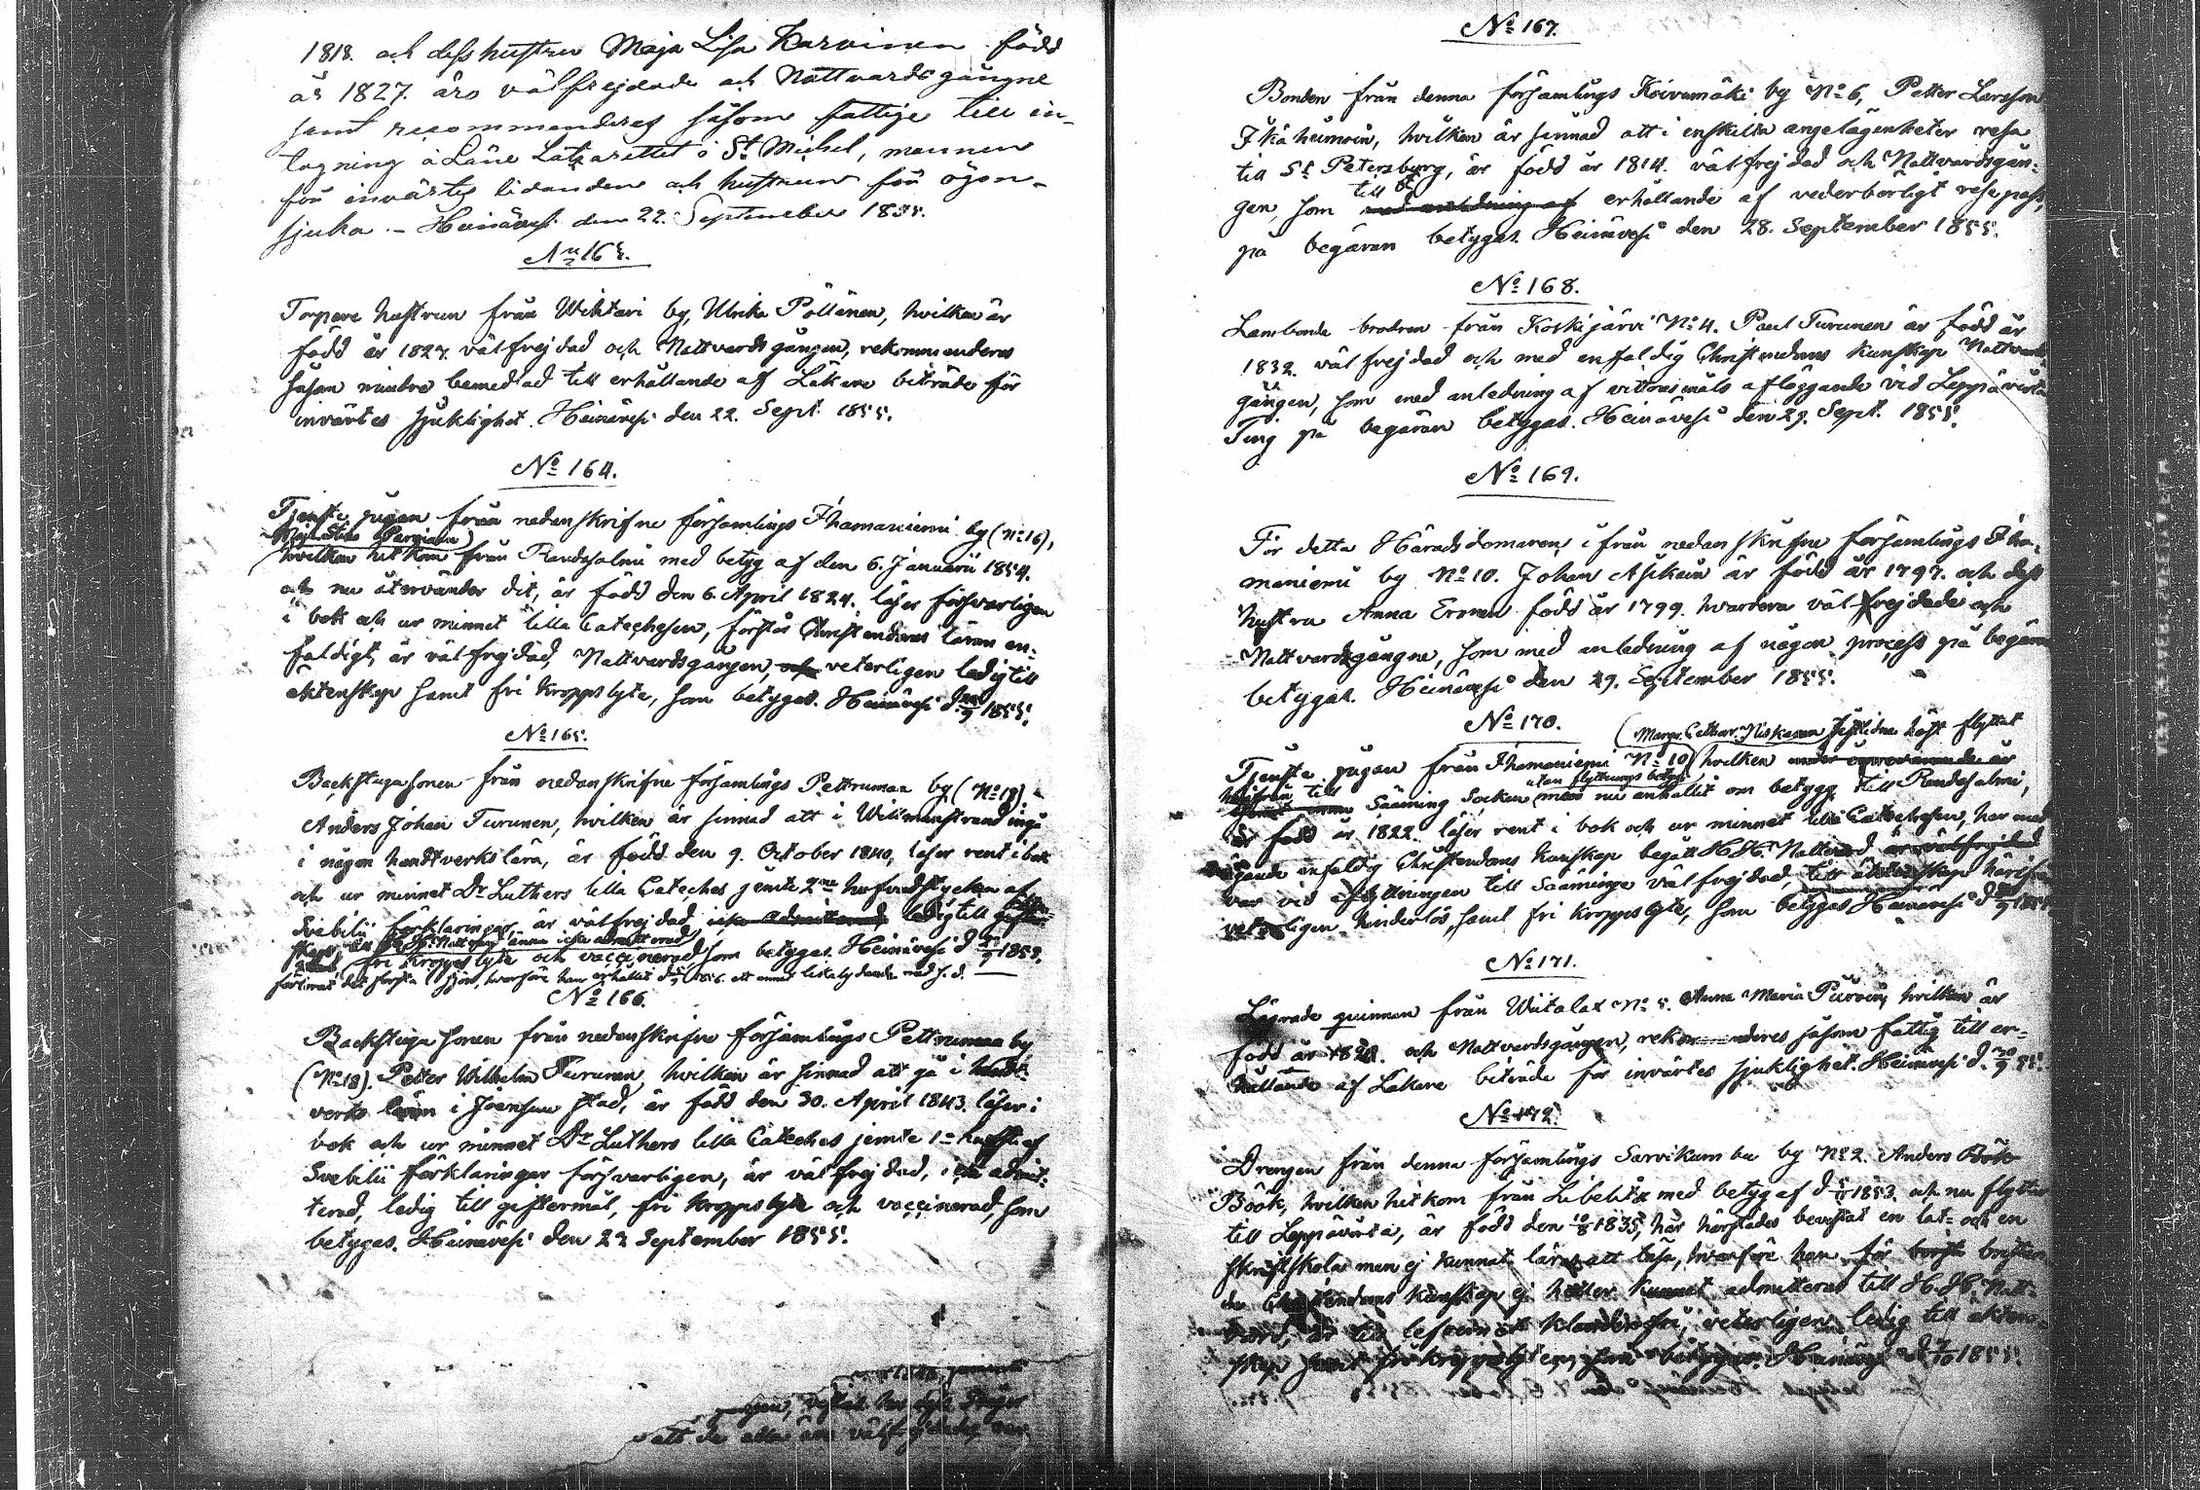 1818. och dess hustru Maja Lisa Karvinen född
år 1827. äro välfrejdade och Nattvardsgångne
samt recommenderas såsom fattige till in-
tagning å Läns Lazarettet i St Michel, mannen
för invärtes lidanden och hustrun för ögon-
sjuka. - Heinävesi den 22. September 1855.
No 163.
Torpare hustrun från Wihtari by, Ulrika Pöllänen, hvilken är
född år 1827. välfrejdad och Nattvardsgången, rekommenderas
såsom mindre bemedlad till erhållande af Läkare biträde för
invärtes sjuklighet. Heinävesi den 22. Sept. 1855.
No 164.
Tjenste pigan från nedanskrifne församlings Ihamaniemi by (No 16),
hvilken hitkom från Randasalmi med betyg af den 6. Januarii 1854.
och nu återvänder dit, är född den 6. April 1824, läser försvarligen
i bok och ur minnet lilla Catechesen, förstår Christendoms läran en-
faldigt, är välfrejdad, Nattvardsgången, och veterligen ledig till
äktenskap samt fri kroppslyte, som betygas. Heinävesi d. 1855.
No 165.
Backstuga sonen från nedanskrifne församlings Pettrumaa by (No 18).
Anders Johan Turunen, hvilken är sinnad att i Willmanstrand ingå
i någon handtverks lära, är född den 9. October 1840, läser rent i bok
och ur minnet Dr Luthers lilla Cateches jemte 2ne hufvudstycken af
Svebilii förklaringar, är välfrejdad, icke admitterad, ledig till
H. H. Nattvard ännu icke admitterad
fri kroppslyte och vaccinerad, som betygas. Heinävesi d. 1855.
No 166.
Backstuga sonen från nedanskrifne församlings Pettrumaa by
(No 18). Petter Wilhelm Turunen, hvilken är sinnad att gå i handt-
verks lära i Joensuu stad, är född den 30. April 1843. läser i
bok och ur minnet Dr Luthers lilla Cateches jemte 1a af
Svebilii förklaringar försvarligen, är välfrejdad, icke admit-
terad, ledig till giftermål, fri kroppslyte och vaccinerad, som
betygas. Heinävesi den 22 September 1855.
att de alla äro välfrejdade,
No 167.
Bonden från denna församlings Koivumäki by No 6, Petter Larsson
Ikäheimoin, hvilken är sinnad att i enskilta angelägenheter resa
till St Petersburg, är född år 1814. välfrejdad och Nattvardsgån-
till
gen, som med anledning af erhållande af vederbörligt resepass,
på begäran betygas. Heinävesi den 28. September 1855.
No 168.
Landbonde brodren från Koskijärvi No 4. Paul Turunen är född år
1832. välfrejdad och med enfaldig Christendoms kunskap Nattvards-
gången, som med anledning af vittnesmåls afläggande vid Leppävirta
Ting på begäran betygas. Heinävesi den 29. Sept. 1855.
No 169.
För detta Häradsdomaren ifrån nedanskrifne församlings Iha-
maniemi by No 10. Johan Asikain är född år 1797. och dess
hustru Anna Eronen född år 1799. hvardera välfrejdade och
Nattvardsgångne, som med anledning af någon process på begäran
betygas. Heinävesi den 29. September 1855.
No 170.
(Margr. Cathar. Niskanen) sistlidne höst flyttat
Tjenste pigan från Ihamaniemi No 10 hvilken
utan flyttnings betyg
härifrån till Sääming Socken men nu anhållit om betyg till Randasalmi,
är född år 1822. läser rent i bok och ur minnet lilla Catechesen, har med
enfaldig Christendoms kunskap begått H. H. Nattvard
var vid afflyttningen till Sääminge välfrejdad, till äktenskap härifrån
veterligen hinderlös, samt fri kroppslyte, som betygas Heinävesi d. 1855
No 171.
Lägrade qvinnan från Wiitalax No 5. Anna Maria Puroin, hvilken är
född år 1820. och Nattvardsgången, rekommenderas såsom fattig till er-
hållande af Läkare biträde för invärtes sjuklighet. Heinävesi d. 55.
No 172.
Drengen från denna församlings Sarvikumbu by No 2. Anders Böök
Böök, hvilken hitkom från Libelitz med betyg af d. 1853. och nu flyttar
till Leppävirta, är född den 1835, har härstädes bevistat en läs- och en
skriftskola men ej kunnat läras att läsa, hvarföre han för brist
Christendoms kunskap ej heller kunnat admitteras till H. H. Natt-
vard, är till lefvernet klanderfri, veterligen ledig till äkten-
skap samt fri kroppslyte, som betygas. Heinävesi d. 1855.